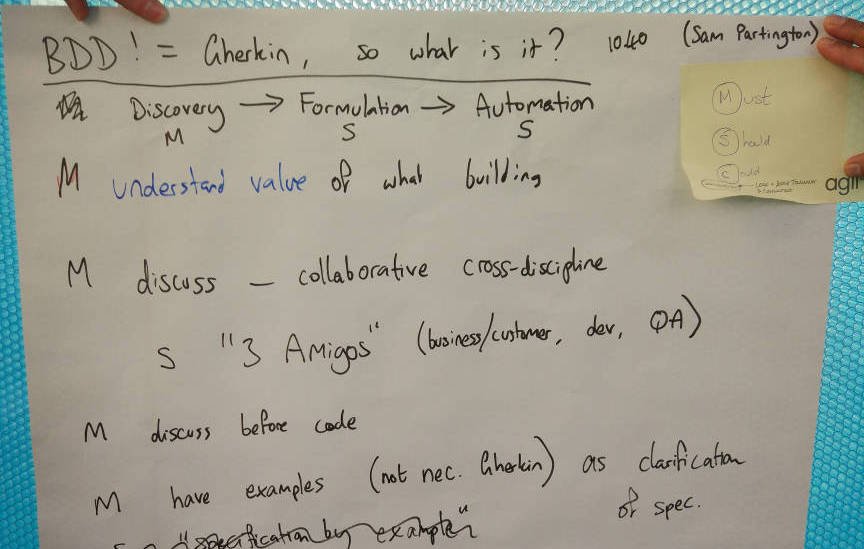 BDD! = Gherkin, so what is it? 1040 (Sam Partington)
Discovery → Formulation → Automation
M S S
M understand value of what building
M discuss – collaborative cross-discipline
S "3 Amigos" (business/customer, dev, QA)
M discuss before code
M have examples (not nec. Gherkin) as clarification
of spec.
S "specification by example"
Must
Should
Could
agil